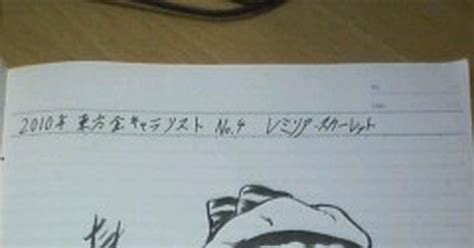 2010年 東方全キャラリスト No.4 レミリア・スカーレット